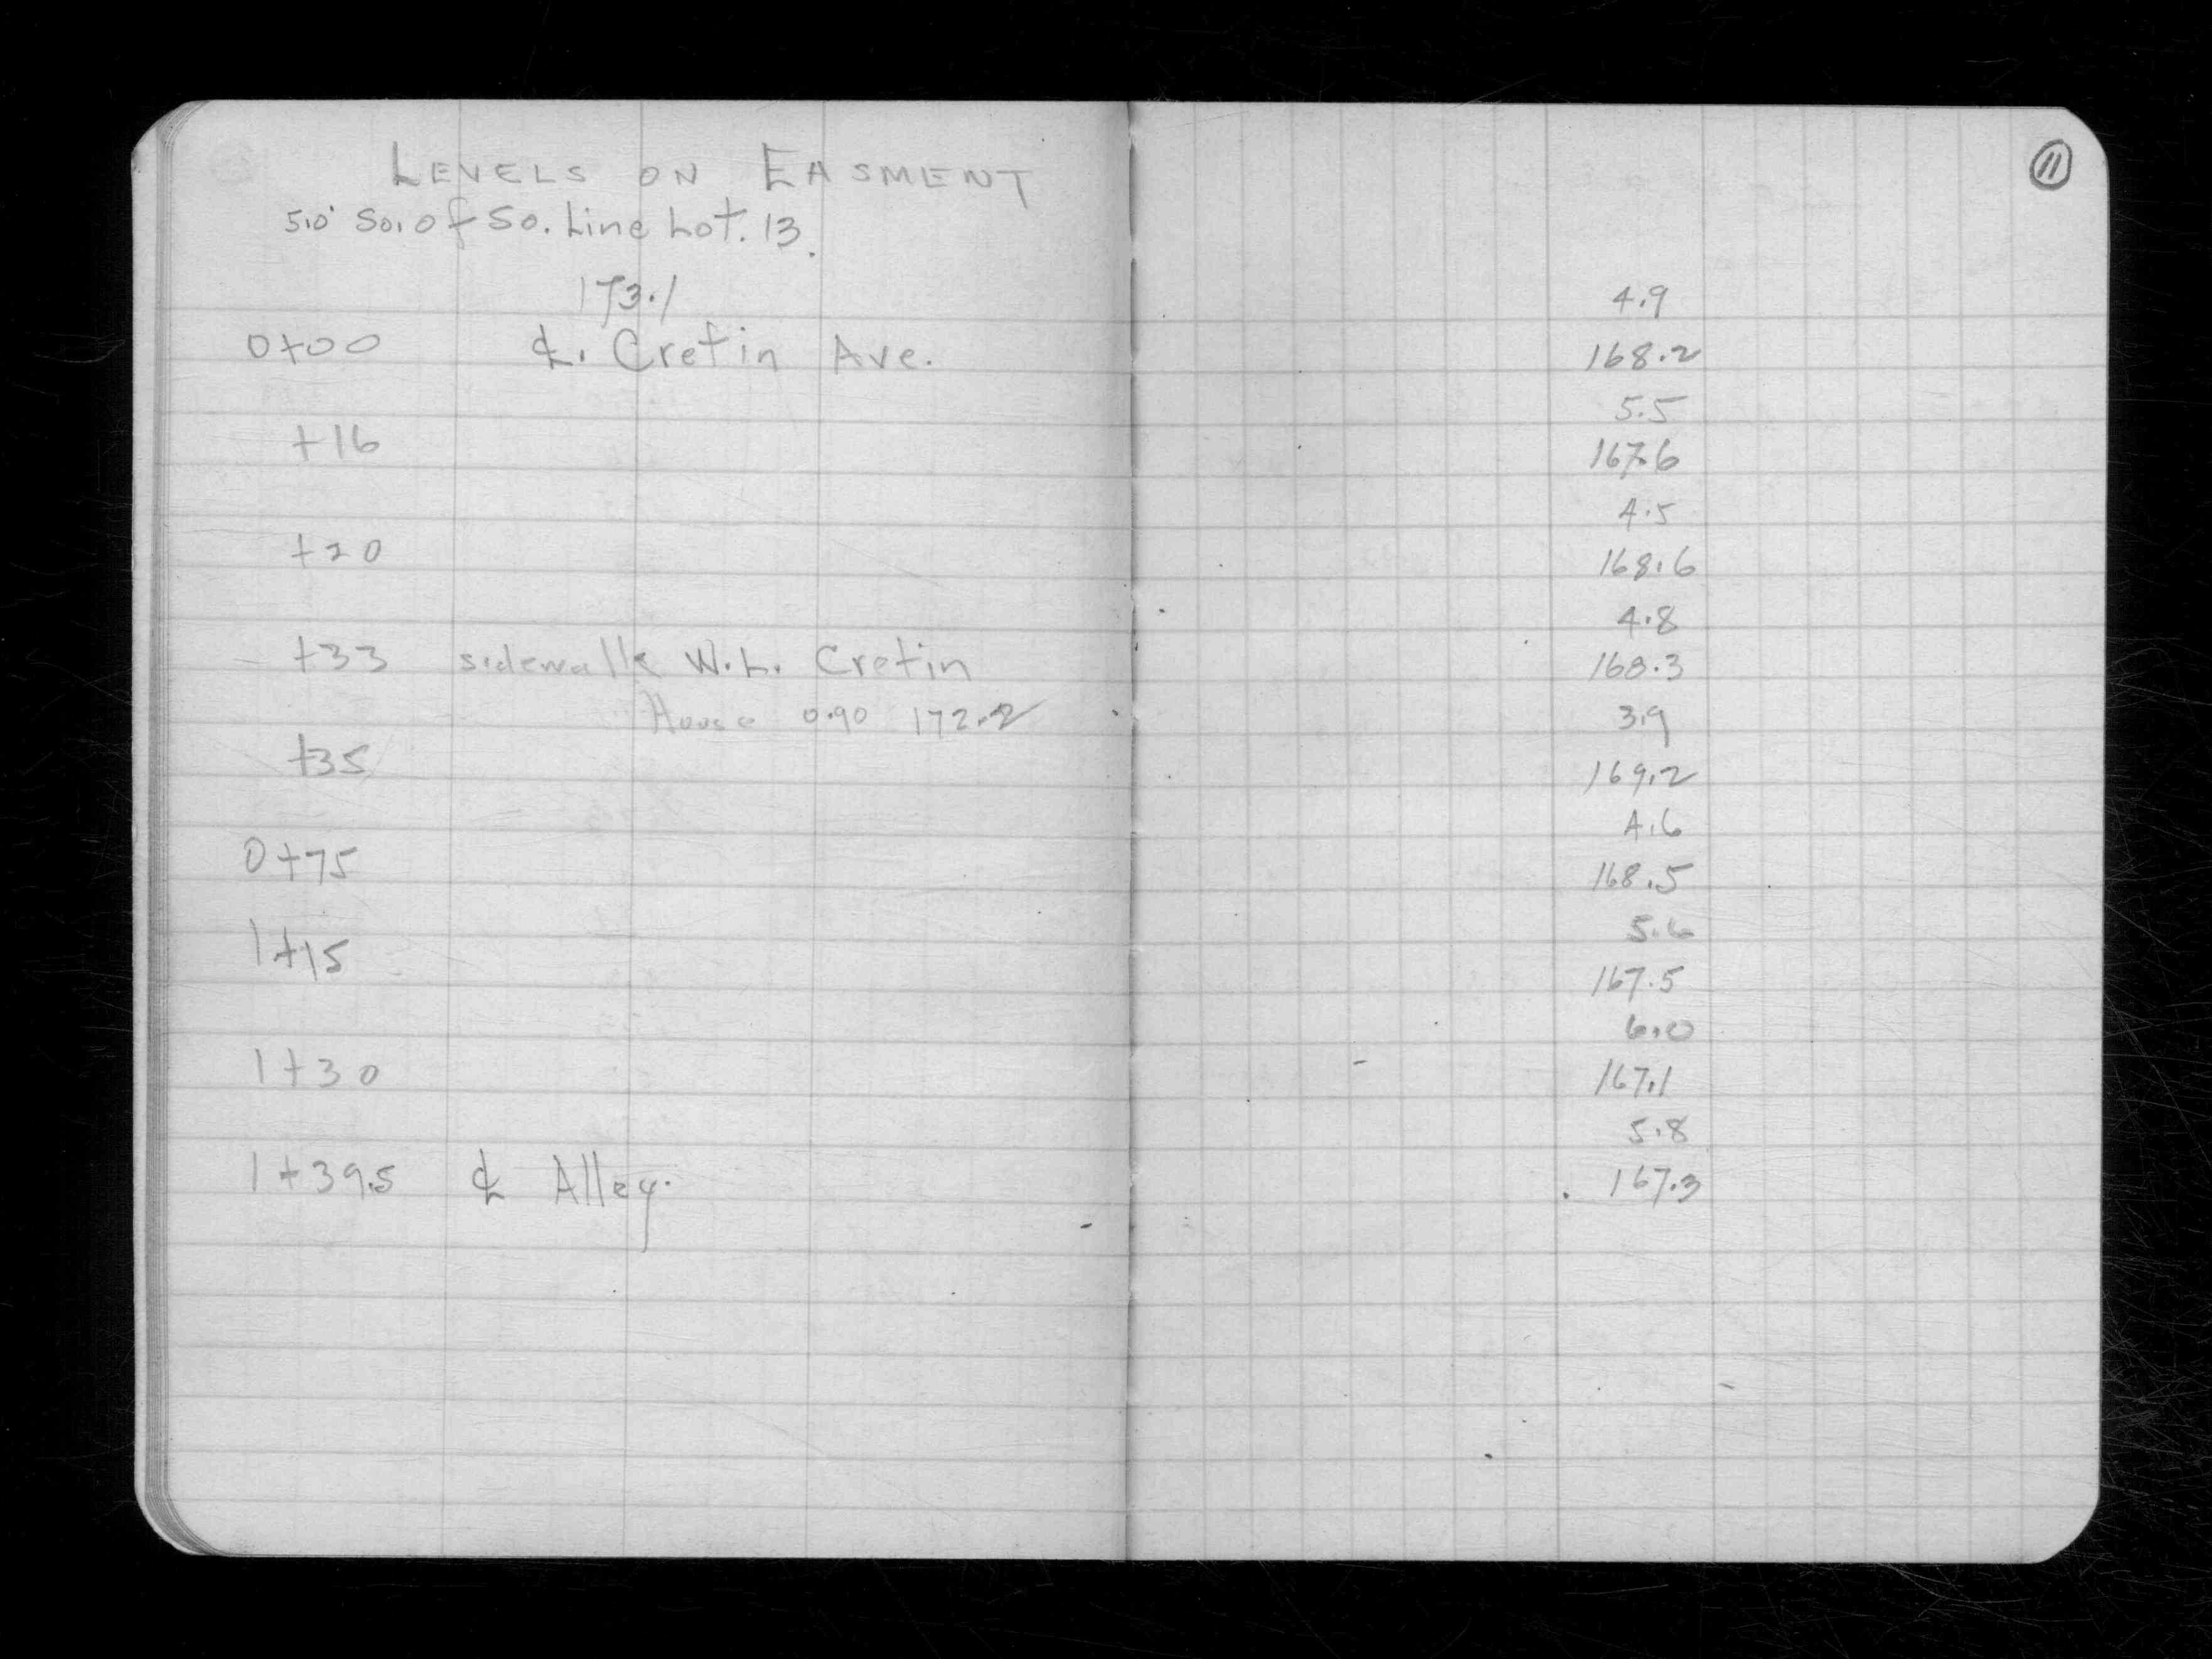 LEVELS ON EASMENT
5.0' So. of So. Line Lot. 13.
11
173.1 4.9
0+00 ℄. Cretin Ave. 168.2
5.5
+16 167.6
4.5
+20 168.6
4.8
+33 sidewalk W.L. Cretin 168.3
House 0.90 172.2 3.9
+35 169.2
4.6
0+75 168.5
5.6
1+15 167.5
6.0
1+30 167.1
5.8
1+39.5 ℄ Alley. 167.3